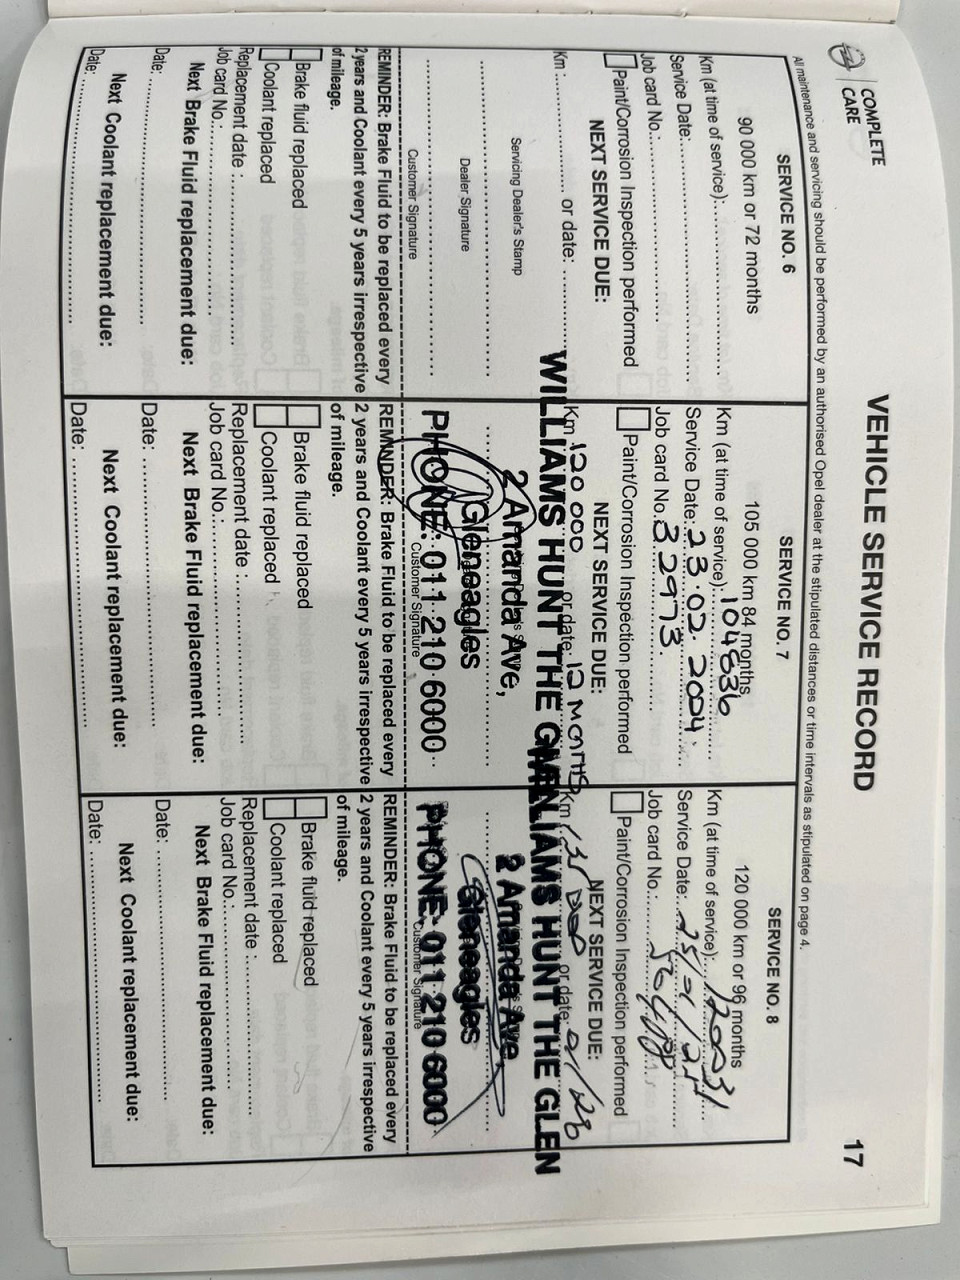 COMPLETE
CARE
VEHICLE SERVICE RECORD
17
All maintenance and servicing should be performed by an authorised Opel dealer at the stipulated distances or time intervals as stipulated on page 4.
SERVICE NO. 6
90 000 km or 72 months
Km (at time of service):
Service Date:
Job card No.:
Paint/Corrosion Inspection performed
NEXT SERVICE DUE:
Km : or date:
Servicing Dealer's Stamp
Dealer Signature
Customer Signature
REMINDER: Brake Fluid to be replaced every
2 years and Coolant every 5 years irrespective
of mileage.
Brake fluid replaced
Coolant replaced
Replacement date :
Job card No.:
Next Brake Fluid replacement due:
Date:
Next Coolant replacement due:
Date:
SERVICE NO. 7
105 000 km 84 months
Km (at time of service): 104836
Service Date: 23.02.2024.
Job card No.: 32973.
Paint/Corrosion Inspection performed
NEXT SERVICE DUE:
Km 120 000 or date: 12 Months
WILLIAMS HUNT THE
2 Amanda Ave,
Gleneagles
PHONE: 011 210 6000
Customer Signature
REMINDER: Brake Fluid to be replaced every
2 years and Coolant every 5 years irrespective
of mileage.
Brake fluid replaced
Coolant replaced
Replacement date :
Job card No.:
Next Brake Fluid replacement due:
Date:
Next Coolant replacement due:
Date:
SERVICE NO. 8
120 000 km or 96 months
Km (at time of service):
Service Date:
Job card No.:
Paint/Corrosion Inspection performed
NEXT SERVICE DUE:
Km or date: 01/26
HUNT THE GLEN
2 Amanda Ave,
Gleneagles
PHONE: 011 210 6000
Customer Signature
REMINDER: Brake Fluid to be replaced every
2 years and Coolant every 5 years irrespective
of mileage.
Brake fluid replaced
Coolant replaced
Replacement date :
Job card No.:
Next Brake Fluid replacement due:
Date:
Next Coolant replacement due:
Date: